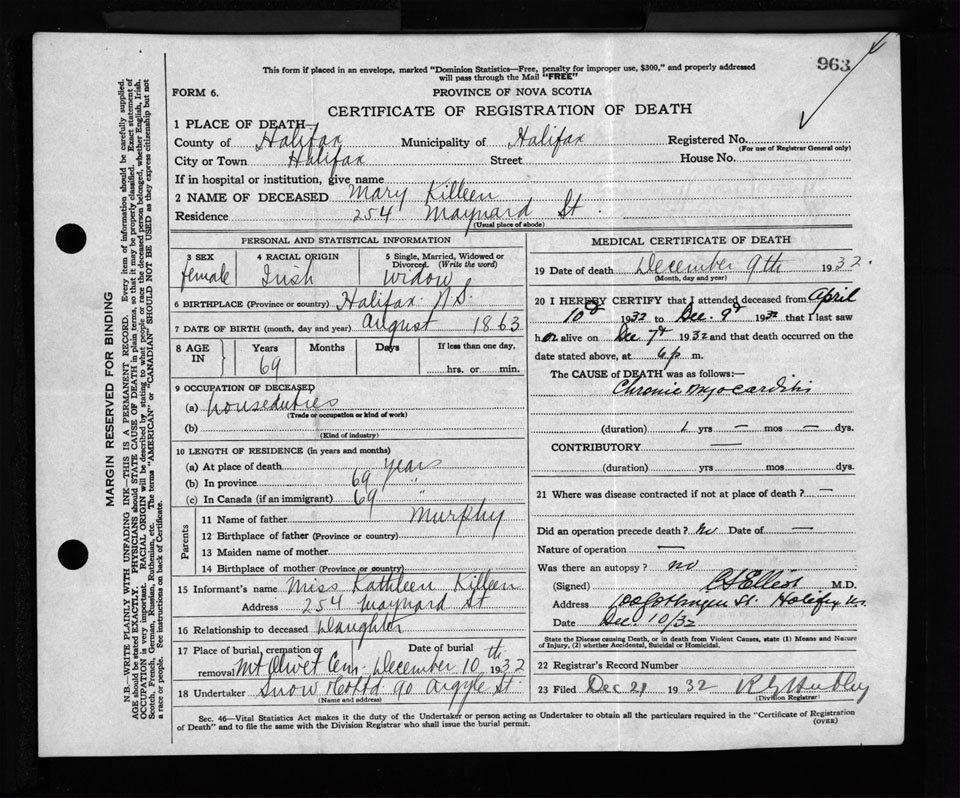 963
This form if placed in an envelope, marked "Dominion Statistics—Free, penalty for improper use, $300," and properly addressed
will pass through the Mail "FREE"
FORM 6.
PROVINCE OF NOVA SCOTIA
CERTIFICATE OF REGISTRATION OF DEATH
1 PLACE OF DEATH—
County of Halifax Municipality of Halifax Registered No.
(For use of Registrar General only)
City or Town Halifax Street House No.
If in hospital or institution, give name
2 NAME OF DECEASED Mary Killeen
Residence 254 Maynard St.
(Usual place of abode)
PERSONAL AND STATISTICAL INFORMATION
3 SEX 4 RACIAL ORIGIN 5 Single, Married, Widowed or
Divorced. (Write the word)
female Irish Widow
6 BIRTHPLACE (Province or country) Halifax N.S.
7 DATE OF BIRTH (month, day and year) August 1863
8 AGE IN Years Months Days If less than one day,
69 hrs. or min.
9 OCCUPATION OF DECEASED
(a) houseduties
(Trade or occupation or kind of work)
(b)
(Kind of industry)
10 LENGTH OF RESIDENCE (in years and months)
(a) At place of death years
(b) In province 69 "
(c) In Canada (if an immigrant) 69 "
Parents
11 Name of father Murphy
12 Birthplace of father (Province or country)
13 Maiden name of mother
14 Birthplace of mother (Province or country)
15 Informant's name Miss Kathleen Killeen
Address 254 Maynard St
16 Relationship to deceased Daughter
17 Place of burial, cremation or removal Mt Olivet Cem. Date of burial December 10th 1932
18 Undertaker Snow & Co Ltd 90 Argyle St.
(Name and address)
MEDICAL CERTIFICATE OF DEATH
19 Date of death December 9th 1932.
(Month, day and year)
20 I HEREBY CERTIFY that I attended deceased from April
10th 1932 to Dec. 9th 1932 that I last saw
her alive on Dec 7th 1932 and that death occurred on the
date stated above, at 6 p m.
The CAUSE of DEATH was as follows:—
Chronic Myocarditis
(duration) 1 yrs — mos — dys.
CONTRIBUTORY —
(duration) yrs mos dys.
21 Where was disease contracted if not at place of death? —
Did an operation precede death? no Date of —
Nature of operation —
Was there an autopsy? no
(Signed) Elliot M.D.
Address Gottingen St. Halifax
Date Dec. 10/32
State the Disease causing Death, or in death from Violent Causes, state (1) Means and Nature
of Injury, (2) whether Accidental, Suicidal or Homicidal.
22 Registrar's Record Number
23 Filed Dec 21 1932
(Division Registrar)
Sec. 46—Vital Statistics Act makes it the duty of the Undertaker or person acting as Undertaker to obtain all the particulars required in the "Certificate of Registration
of Death" and to file the same with the Division Registrar who shall issue the burial permit.
(OVER)
MARGIN RESERVED FOR BINDING
N.B.—WRITE PLAINLY WITH UNFADING INK—THIS IS A PERMANENT RECORD. Every item of information should be carefully supplied.
AGE should be stated EXACTLY. PHYSICIANS should STATE CAUSE OF DEATH in plain terms, so that it may be properly classified. Exact statement of
OCCUPATION is very important. RACIAL ORIGIN will be described by stating to what people or race the deceased person belonged, whether English, Irish,
Scotch, French, German, Russian, Ruthenian, etc. The terms "AMERICAN" or "CANADIAN" SHOULD NOT BE USED as they express citizenship but not
a race or people. See instructions on back of Certificate.